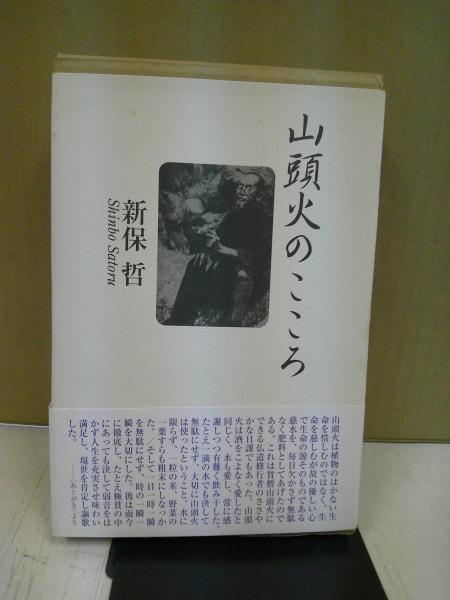 山頭火のこころ
新保 哲
Shinbo Satoru
山頭火は植物のはかない生
命を惜しむのではなく、生
命を慈しむが故の優しい心
で生命の源そのものである
慈水を、毎日欠かさず無駄
なく肥料としてあげたので
ある。これは貧僧山頭火に
できる仏道修行者のささや
かな日課でもあった。山頭
火は酒をこよなく愛したと
同じく、水も愛し、常に感
謝しつつ有難く飲み干した。
たとえ一滴の水でも決して
無駄にせず、大切に山頭火
は使ったということ。水に
限らず、一粒の米、野菜の
一葉すらも粗末にしなかっ
た。/そして一日一時一瞬
を無駄にせず、一瞬一
瞬を大切にした。彼は而今
に徹底し、たとえ極貧の中
にあっても決して弱音をは
かず人生を充実させ味わい
満足し、現世を肯定し謳歌
した。
──あとがきより